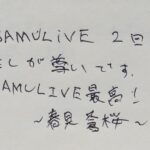 SAMULIVE 2回
しが尊いです.
AMULIVE最高！
～春見 蒼桜～